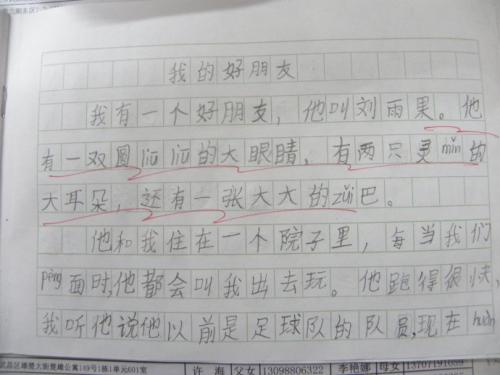 我的好朋友
我有一个好朋友，他叫刘雨果。他
有一双圆liū liū的大眼睛，有两只灵mǐn的
大耳朵，还有一张大大的zuǐ巴。
他和我住在一个院子里，每当我们
pèng面时，他都会叫我出去玩。他跑得很快，
我听他说他以前是足球队的队员，现在
许 海 父女 13098806322 李艳娜 母女